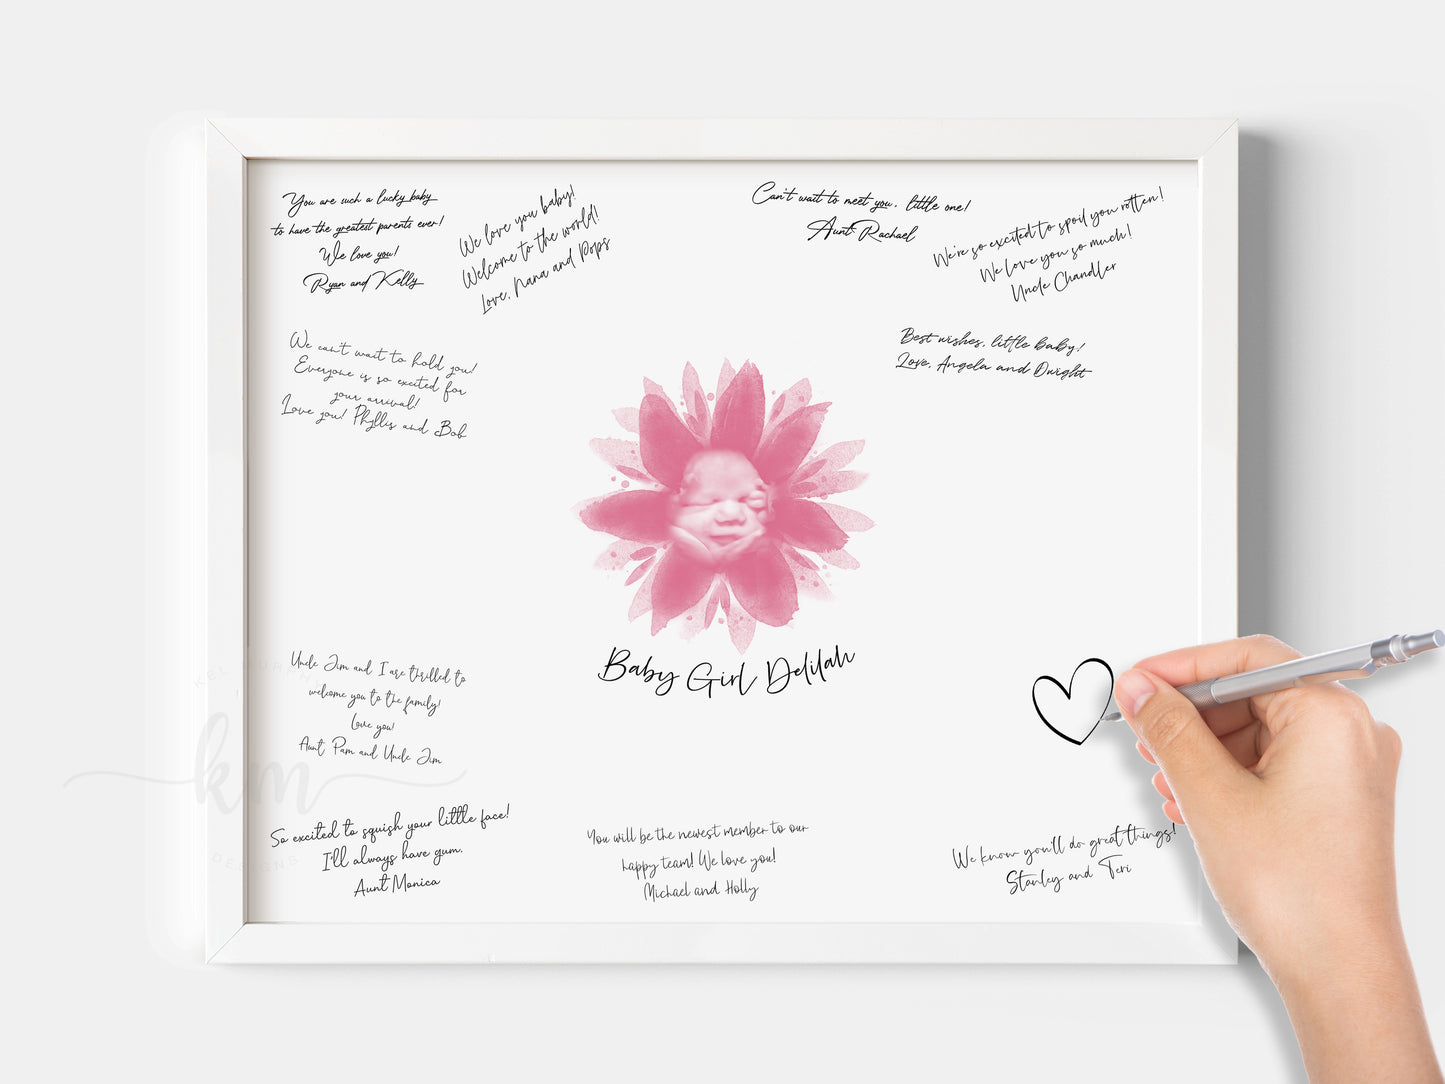 You are such a lucky baby
to have the greatest parents ever!
We love you!
Ryan and Kelly
We love you baby!
Welcome to the world!
Love, Nana and Pops
Can't wait to meet you, little one!
Aunt Rachael
We're so excited to spoil you rotten!
We love you so much!
Uncle Chandler
We can't wait to hold you!
Everyone is so excited for
your arrival!
Love you! Phyllis and Bob
Best wishes, little baby!
Love, Angela and Dwight
Baby Girl Delilah
Uncle Jim and I are thrilled to
welcome you to the family!
Love you!
Aunt Pam and Uncle Jim
KEL MURPHY
km
DESIGNS
So excited to squish your little face!
I'll always have gum.
Aunt Monica
You will be the newest member to our
happy team! We love you!
Michael and Holly
We know you'll do great things!
Stanley and Teri